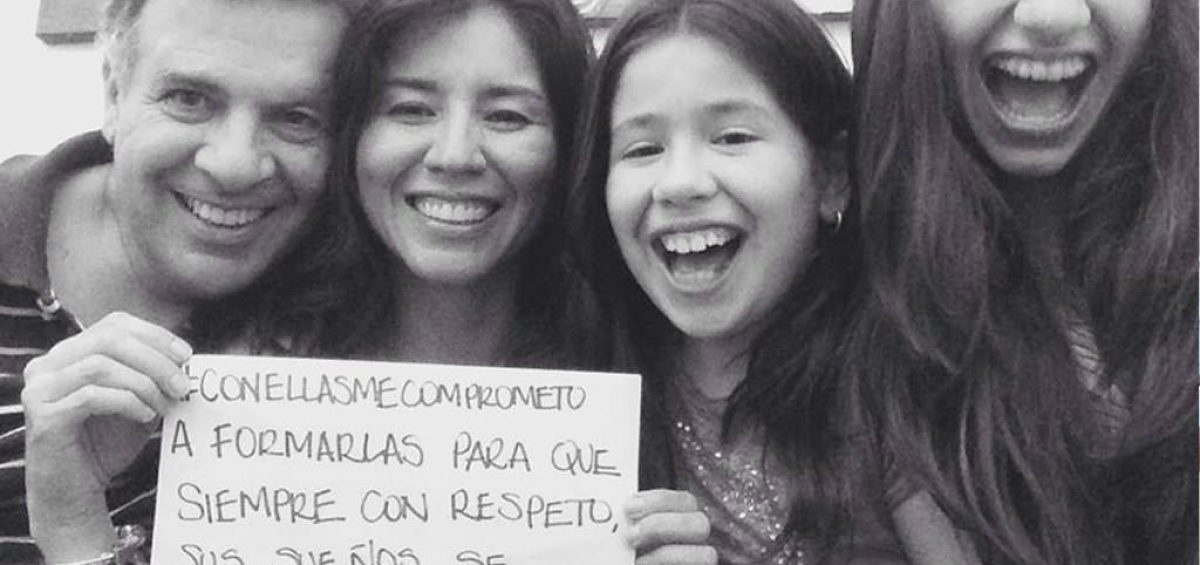 #CONELLASMECOMPROMETO
A FORMARLAS PARA QUE
SIEMPRE CON RESPETO,
SUS SUEÑOS SE